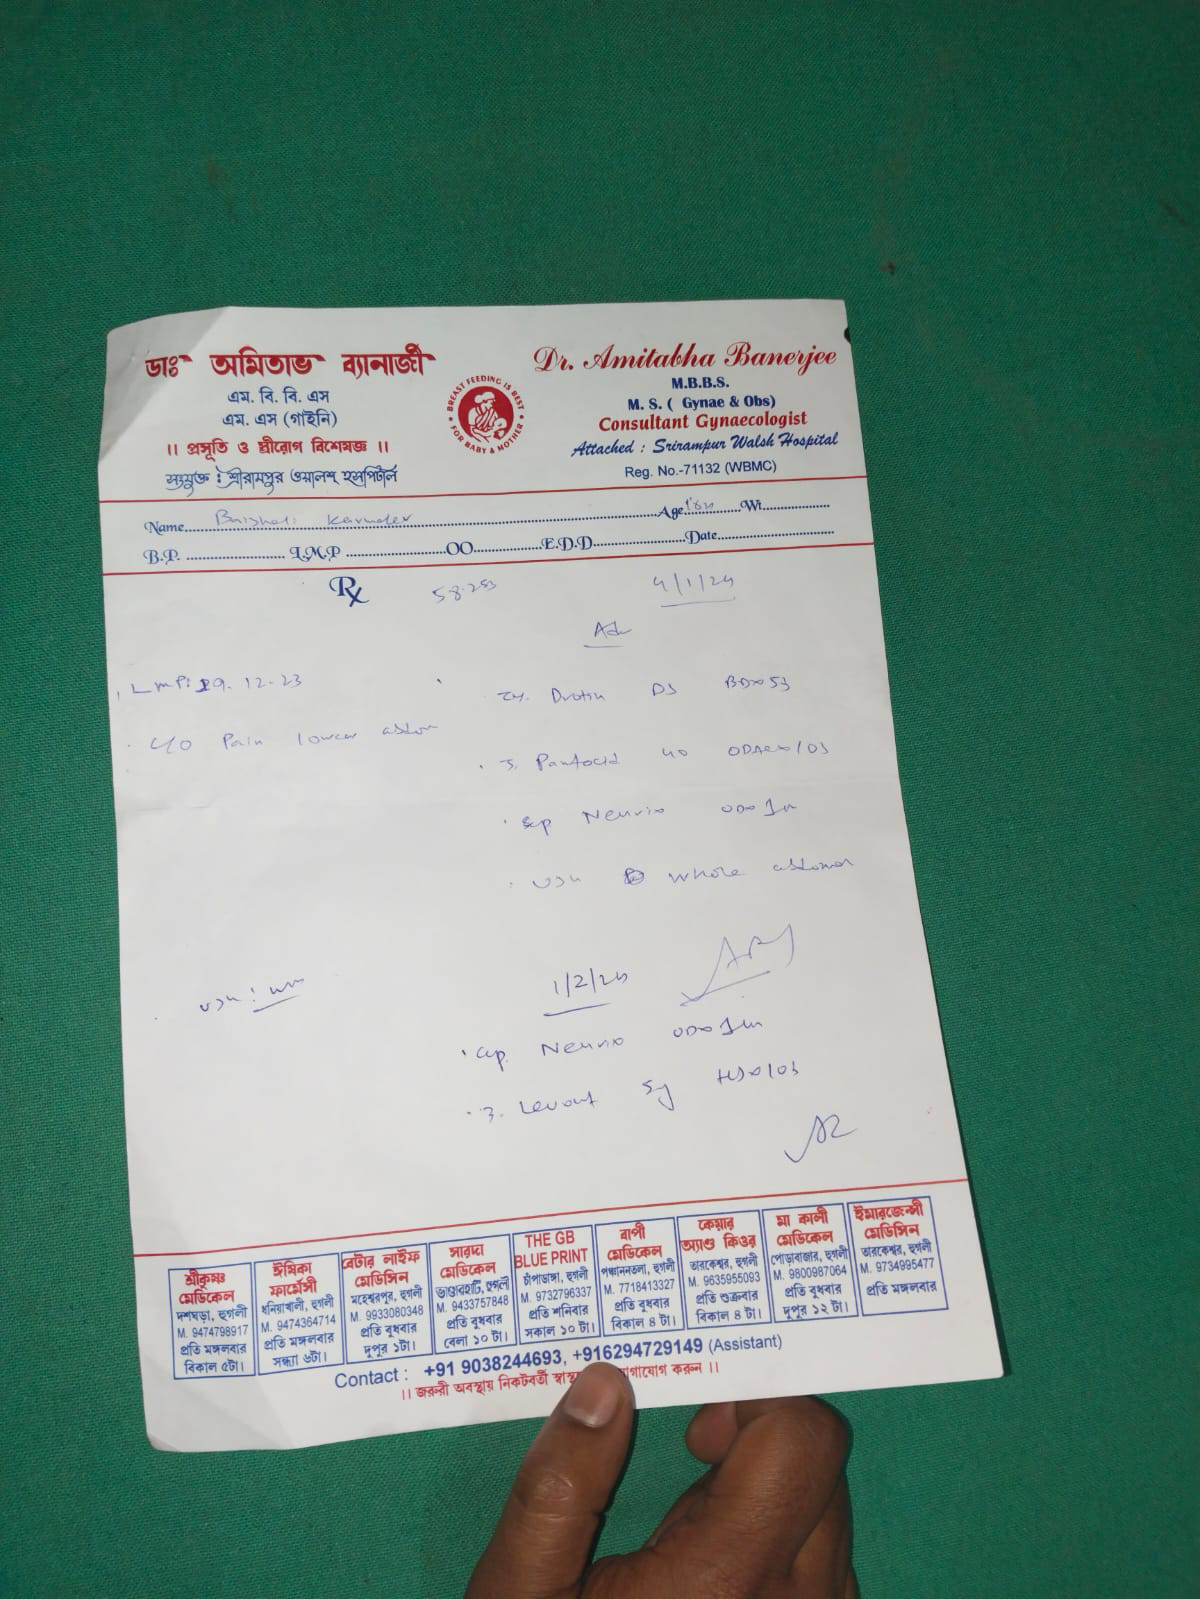 ডাঃ অমিতাভ ব্যানার্জী
এম. বি. বি. এস
এম. এস (গাইনি)
।। প্রসূতি ও স্ত্রীরোগ বিশেষজ্ঞ ।।
সংযুক্ত : শ্রীরামপুর ওয়ালশ্ হসপিটাল
BREAST FEEDING IS BEST
FOR BABY & MOTHER
Dr. Amitabha Banerjee
M.B.B.S.
M. S. ( Gynae & Obs)
Consultant Gynaecologist
Attached : Srirampur Walsh Hospital
Reg. No.-71132 (WBMC)
Name Age Wt
B.P. L.M.P OO E.D.D Date
Rx
4/1/24
Adv
LMP: 29. 12-23
c/o Pain lower abdom
DS
Pantocid 40
cap Neurix
USG Whole abdomen
1/2/24
USG :
cap. Neurix
5
শ্রীকৃষ্ণ মেডিকেল
দশঘড়া, হুগলী
M. 9474798917
প্রতি মঙ্গলবার
বিকাল ৫টা।
ঈষিকা ফার্মেসী
ধনিয়াখালী, হুগলী
M. 9474364714
প্রতি মঙ্গলবার
সন্ধ্যা ৬টা।
বেটার লাইফ মেডিসিন
মহেশ্বরপুর, হুগলী
M. 9933080348
প্রতি বুধবার
দুপুর ১টা।
সারদা মেডিকেল
ভাণ্ডারহাটি, হুগলী
M. 9433757848
প্রতি বুধবার
বেলা ১০ টা।
THE GB BLUE PRINT
চাঁপাডাঙ্গা, হুগলী
M. 9732796337
প্রতি শনিবার
সকাল ১০ টা।
বাপী মেডিকেল
পঞ্চাননতলা, হুগলী
M. 7718413327
প্রতি বুধবার
বিকাল ৪ টা।
কেয়ার অ্যাণ্ড কিওর
তারকেশ্বর, হুগলী
M. 9635955093
প্রতি শুক্রবার
বিকাল ৪ টা।
মা কালী মেডিকেল
পোড়াবাজার, হুগলী
M. 9800987064
প্রতি বুধবার
দুপুর ১২ টা।
ইমারজেন্সী মেডিসিন
তারকেশ্বর, হুগলী
M. 9734995477
প্রতি মঙ্গলবার
Contact : +91 9038244693, +916294729149 (Assistant)
।। জরুরী অবস্থায় নিকটবর্তী করুন ।।